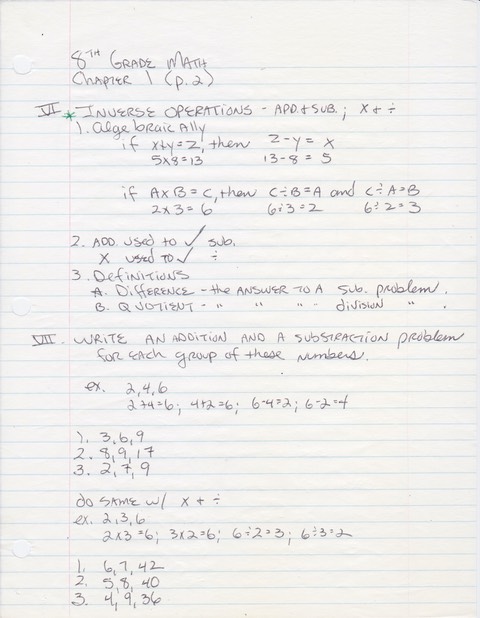 8TH GRADE MATH
CHAPTER 1 (p.2)
VI * INVERSE OPERATIONS - ADD. & SUB.; X & ÷
1. Algebraically
if x+y=z, then z-y=x
5x8=13 13-8=5
if AxB=C, then C÷B=A and C÷A=B
2x3=6 6÷3=2 6÷2=3
2. ADD. used to ✓ sub.
X used to ✓ ÷
3. DEFINITIONS
A. DIFFERENCE - the ANSWER TO A sub. problem.
B. QUOTIENT - " " " " division " .
VII. WRITE AN ADDITION AND A SUBSTRACTION problem
for each group of these numbers.
ex. 2,4,6
2+4=6; 4+2=6; 6-4=2; 6-2=4
1. 3,6,9
2. 8,9,17
3. 2,7,9
do SAME w/ x & ÷
ex. 2,3,6
2x3=6; 3x2=6; 6÷2=3; 6÷3=2
1. 6,7,42
2. 5,8,40
3. 4,9,36